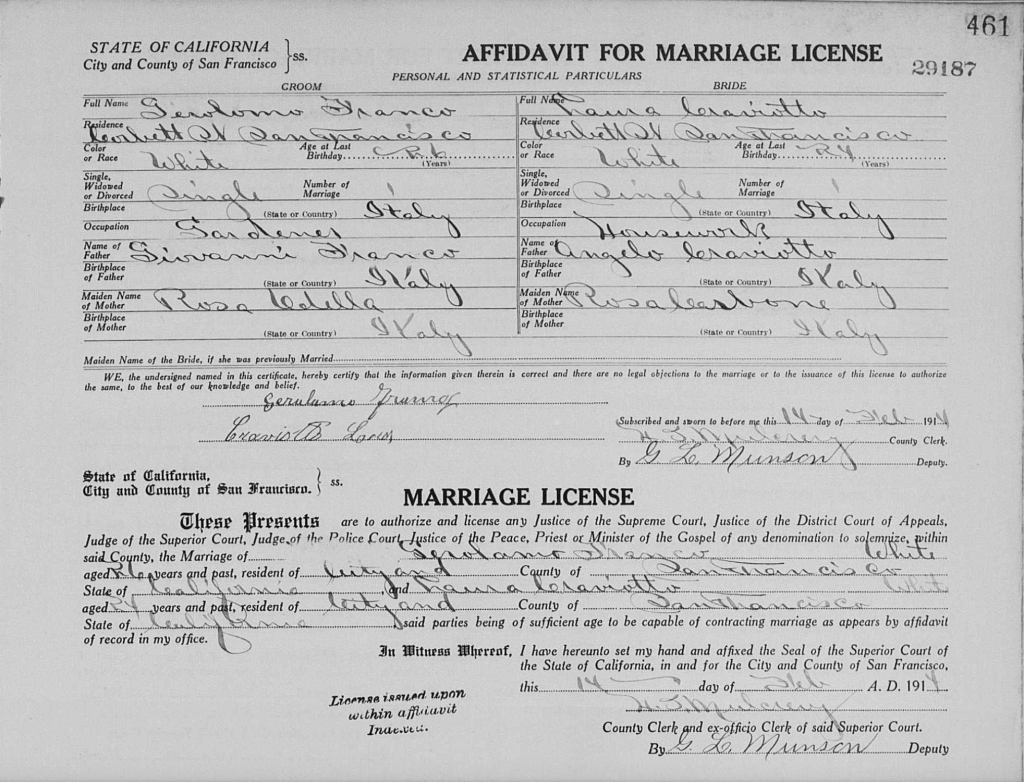 461
STATE OF CALIFORNIA
City and County of San Francisco } ss.
AFFIDAVIT FOR MARRIAGE LICENSE
29187
PERSONAL AND STATISTICAL PARTICULARS
GROOM
BRIDE
Full Name Gerolomo Franco
Full Name Laura Craviotto
Residence Corbett St San Francisco
Residence Corbett St San Francisco
Color or Race White Age at Last Birthday 26 (Years)
Color or Race White Age at Last Birthday 24 (Years)
Single, Widowed or Divorced Single Number of Marriage 1
Single, Widowed or Divorced Single Number of Marriage 1
Birthplace (State or Country) Italy
Birthplace (State or Country) Italy
Occupation Gardener
Occupation Housework
Name of Father Giovanni Franco
Name of Father Angelo Craviotto
Birthplace of Father (State or Country) Italy
Birthplace of Father (State or Country) Italy
Maiden Name of Mother Rosa
Maiden Name of Mother Rosa Carbone
Birthplace of Mother (State or Country) Italy
Birthplace of Mother (State or Country) Italy
Maiden Name of the Bride, if she was previously Married
WE, the undersigned named in this certificate, hereby certify that the information given therein is correct and there are no legal objections to the marriage or to the issuance of this license to authorize
the same, to the best of our knowledge and belief.
Gerolamo
Subscribed and sworn to before me this 14 day of Feb 1914
H. I. Mulcrevy County Clerk.
By G. L. Munson Deputy.
State of California,
City and County of San Francisco. } ss.
MARRIAGE LICENSE
These Presents are to authorize and license any Justice of the Supreme Court, Justice of the District Court of Appeals,
Judge of the Superior Court, Judge of the Police Court, Justice of the Peace, Priest or Minister of the Gospel of any denomination to solemnize, within
said County, the Marriage of Gerolamo Franco White
aged 26 years and past, resident of City and County of San Francisco
State of California and Laura Craviotto White
aged 24 years and past, resident of City and County of San Francisco
State of California said parties being of sufficient age to be capable of contracting marriage as appears by affidavit
of record in my office.
In Witness Whereof, I have hereunto set my hand and affixed the Seal of the Superior Court of
the State of California, in and for the City and County of San Francisco,
this 14 day of Feb A. D. 1914
H. I. Mulcrevy
County Clerk and ex-officio Clerk of said Superior Court.
By G. L. Munson Deputy
License issued upon
within affidavit